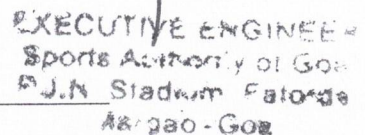 EXECUTIVE ENGINEER
Sports Authority of Goa
P.J.N Stadium Fatorda
Margao-Goa